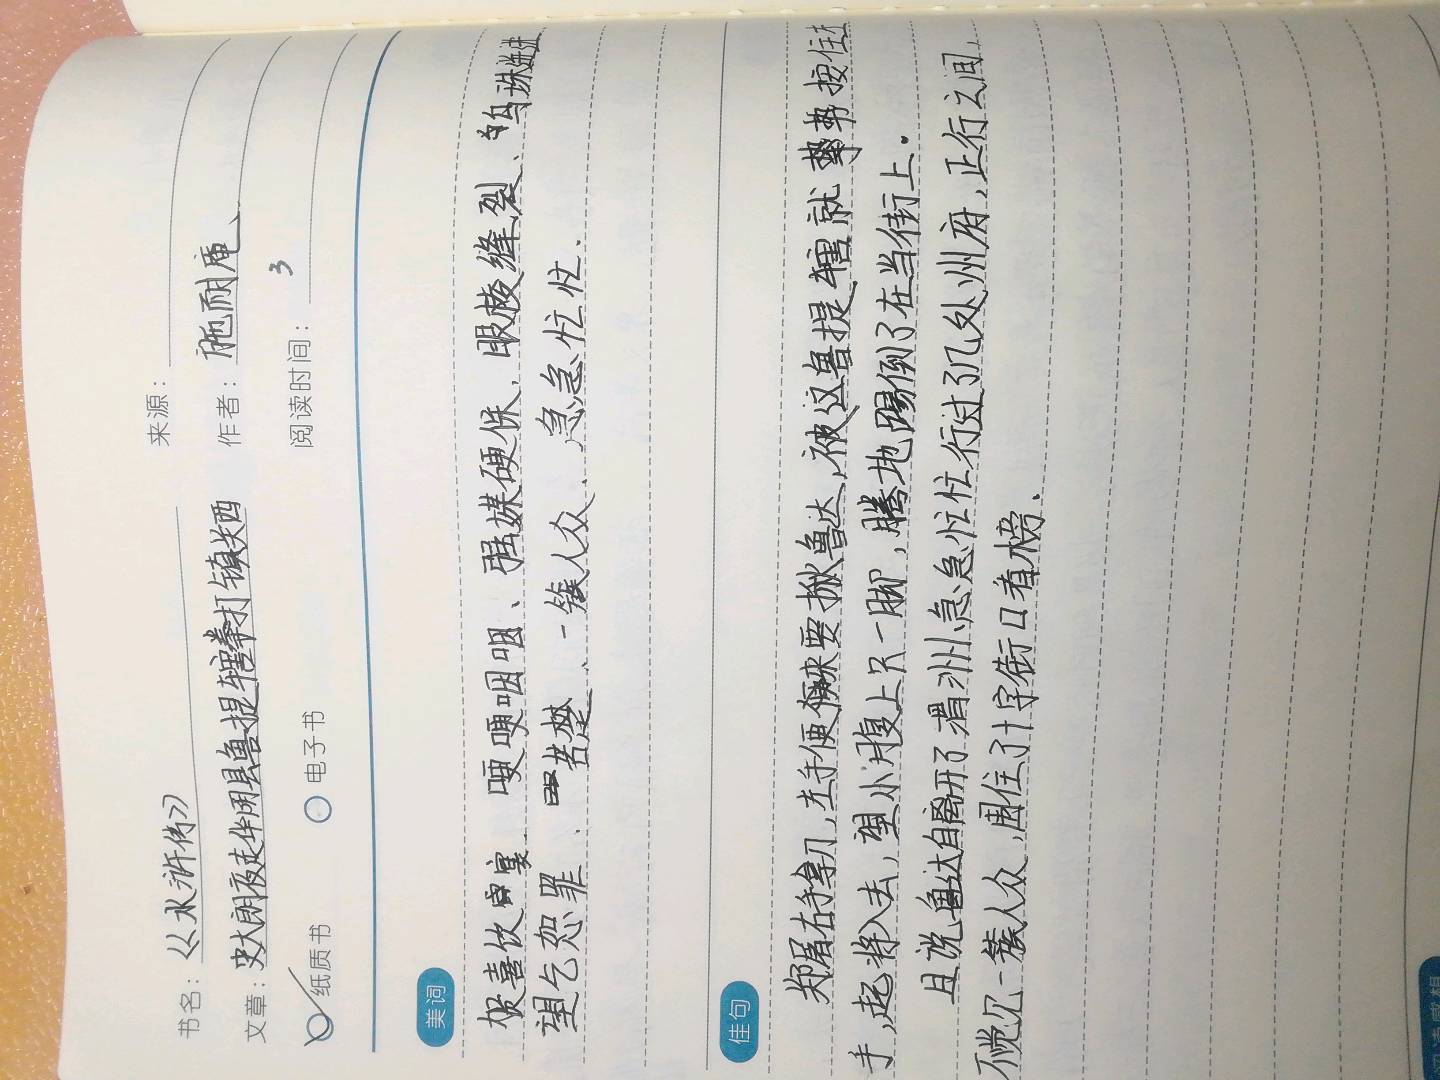 书名：《水浒传》
来源：
文章：史大郎夜走华阴县鲁提辖拳打镇关西
作者：施耐庵、
纸质书 电子书
阅读时间：3
美词
贺喜饮宴、哽哽咽咽、强媒硬保、眼棱缝裂、乌珠迸
望乞恕罪、苦楚、一簇人众、急急忙忙.
佳句
郑屠右手拿刀,左手便来要揪鲁达,被这鲁提辖就势按住
手,起将入去,望小腹上只一脚,腾地踢倒了在当街上.
且说鲁达自离开了渭州急急忙忙行过了几处州府,正行之间,
不觉见一簇人众,围住了十字街口看榜.